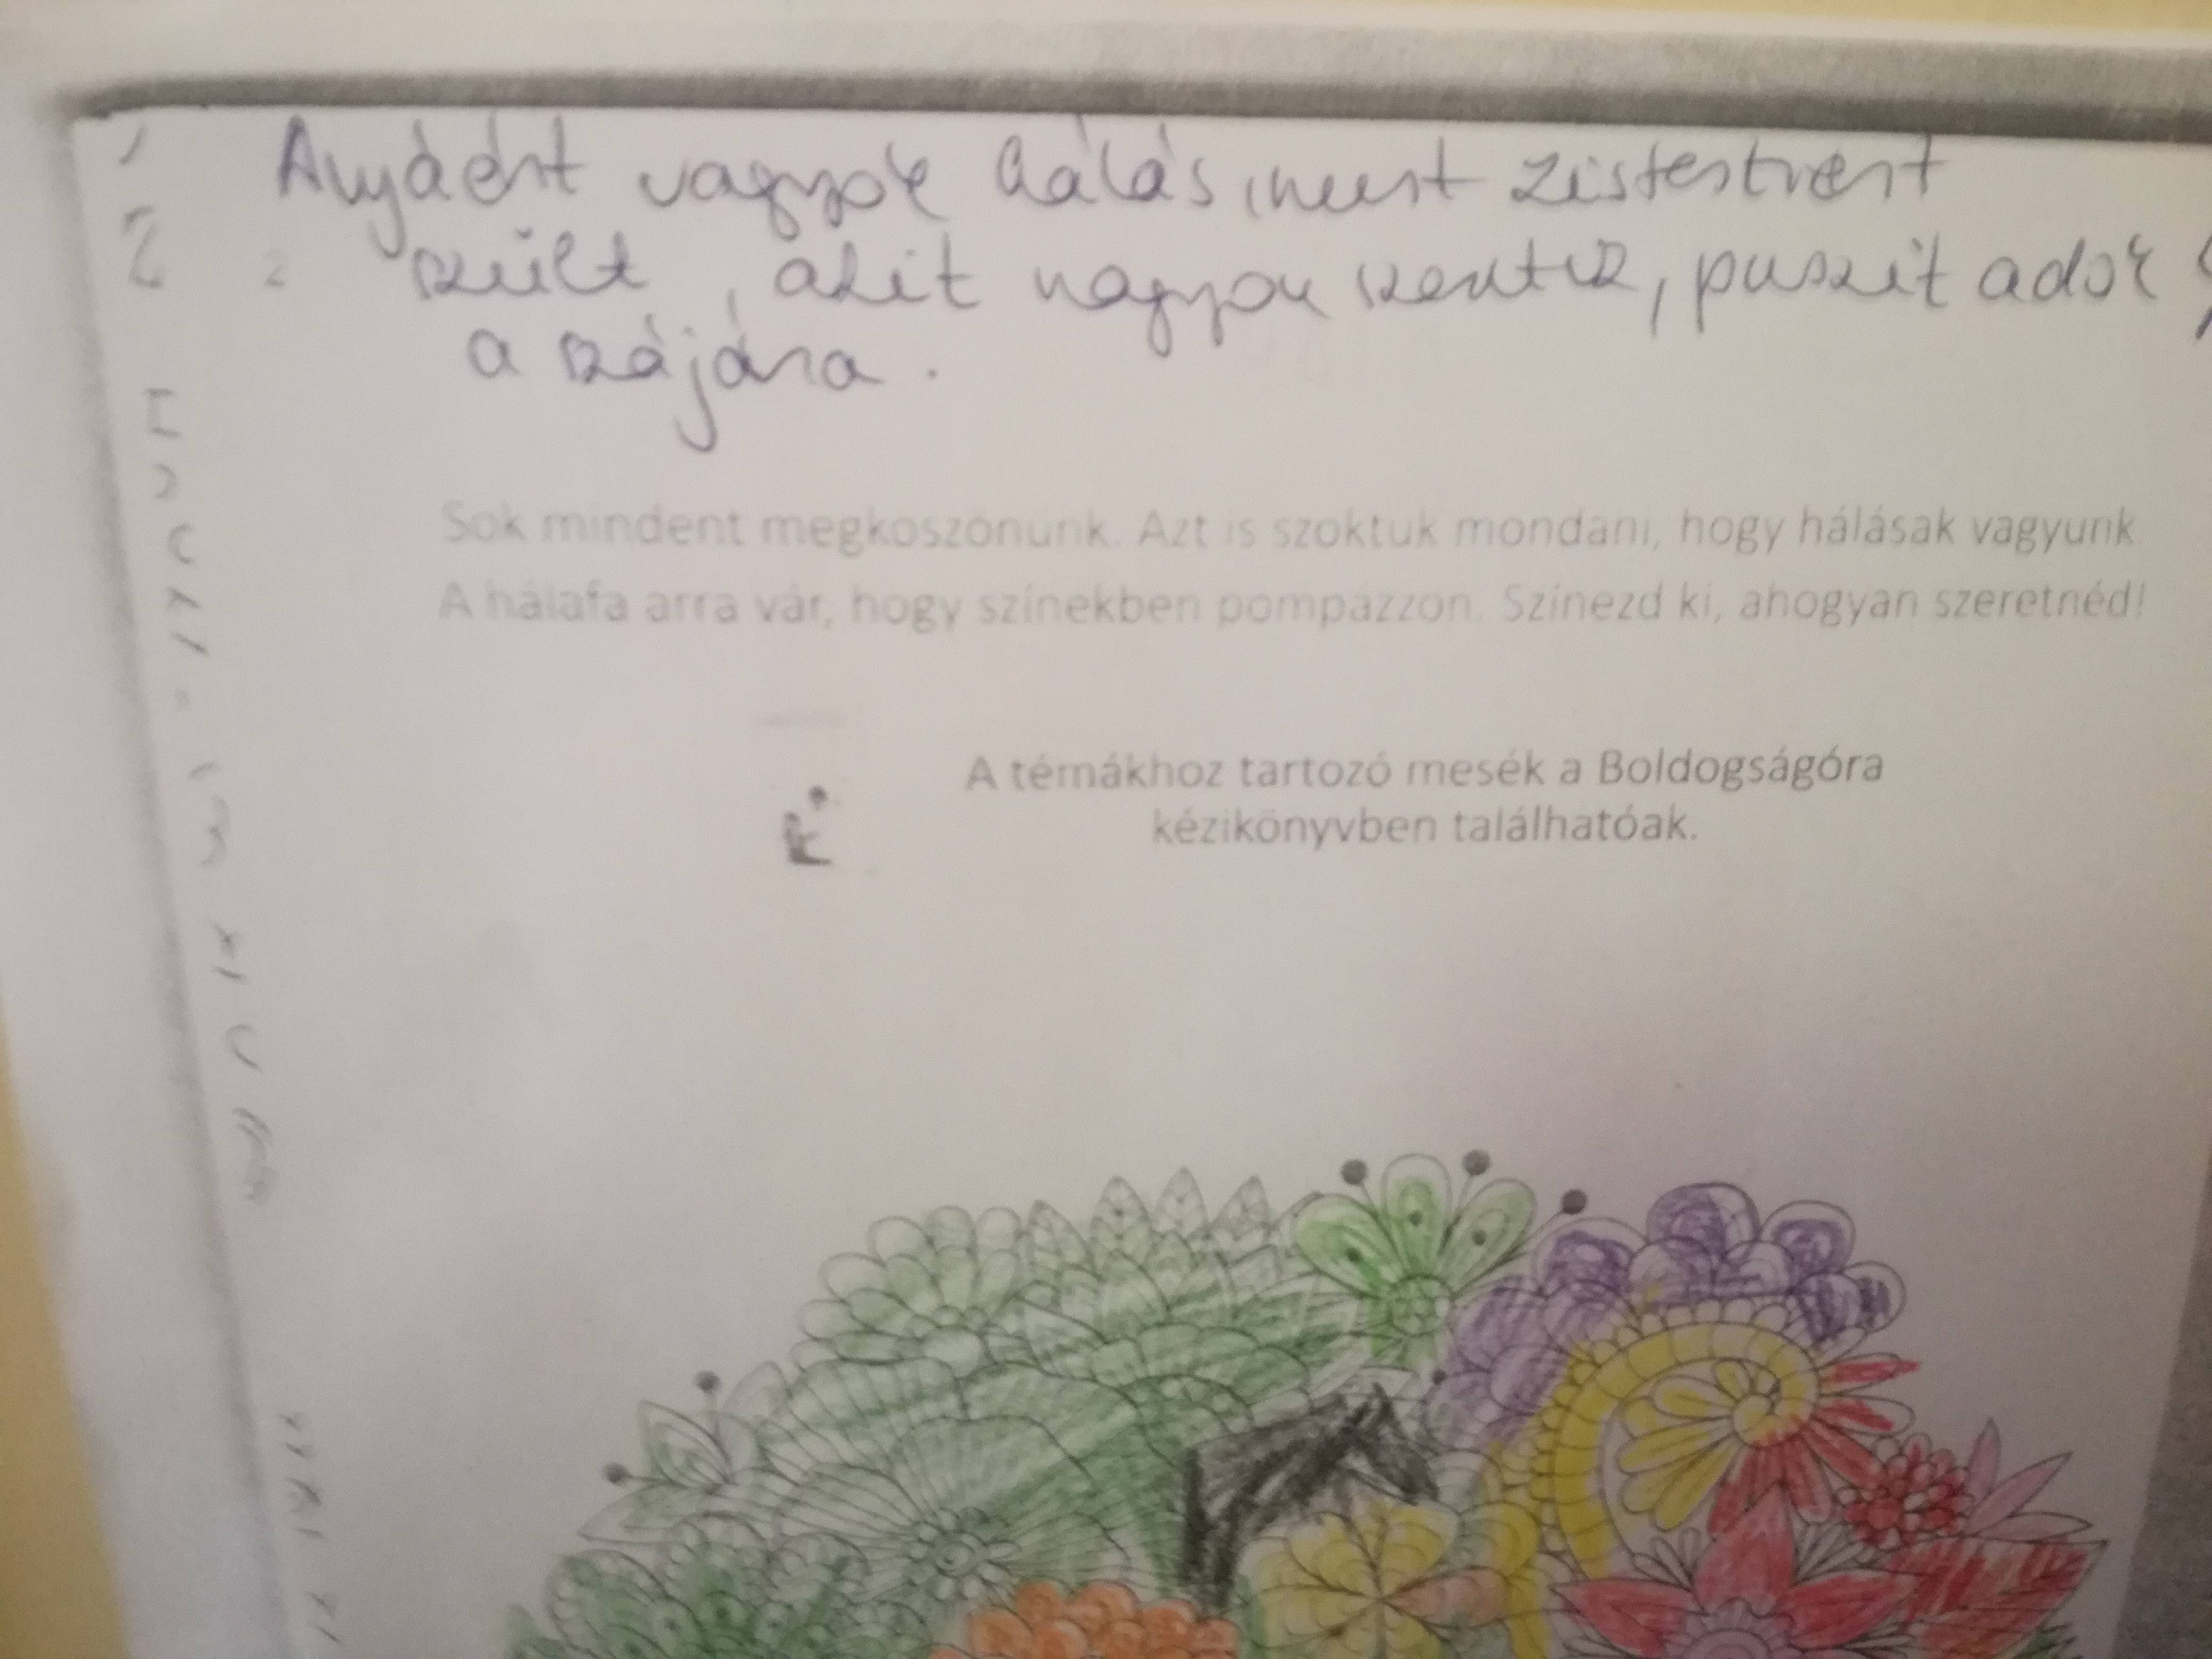 Anyáért vagyok hálás, mert kistestvért
szült, akit nagyon szeretek, puszit adok
a szájára.
Sok mindent megköszönünk. Azt is szoktuk mondani, hogy hálásak vagyunk
A hálafa arra vár, hogy színekben pompázzon. Színezd ki, ahogyan szeretnéd!
A témákhoz tartozó mesék a Boldogságóra
kézikönyvben találhatóak.